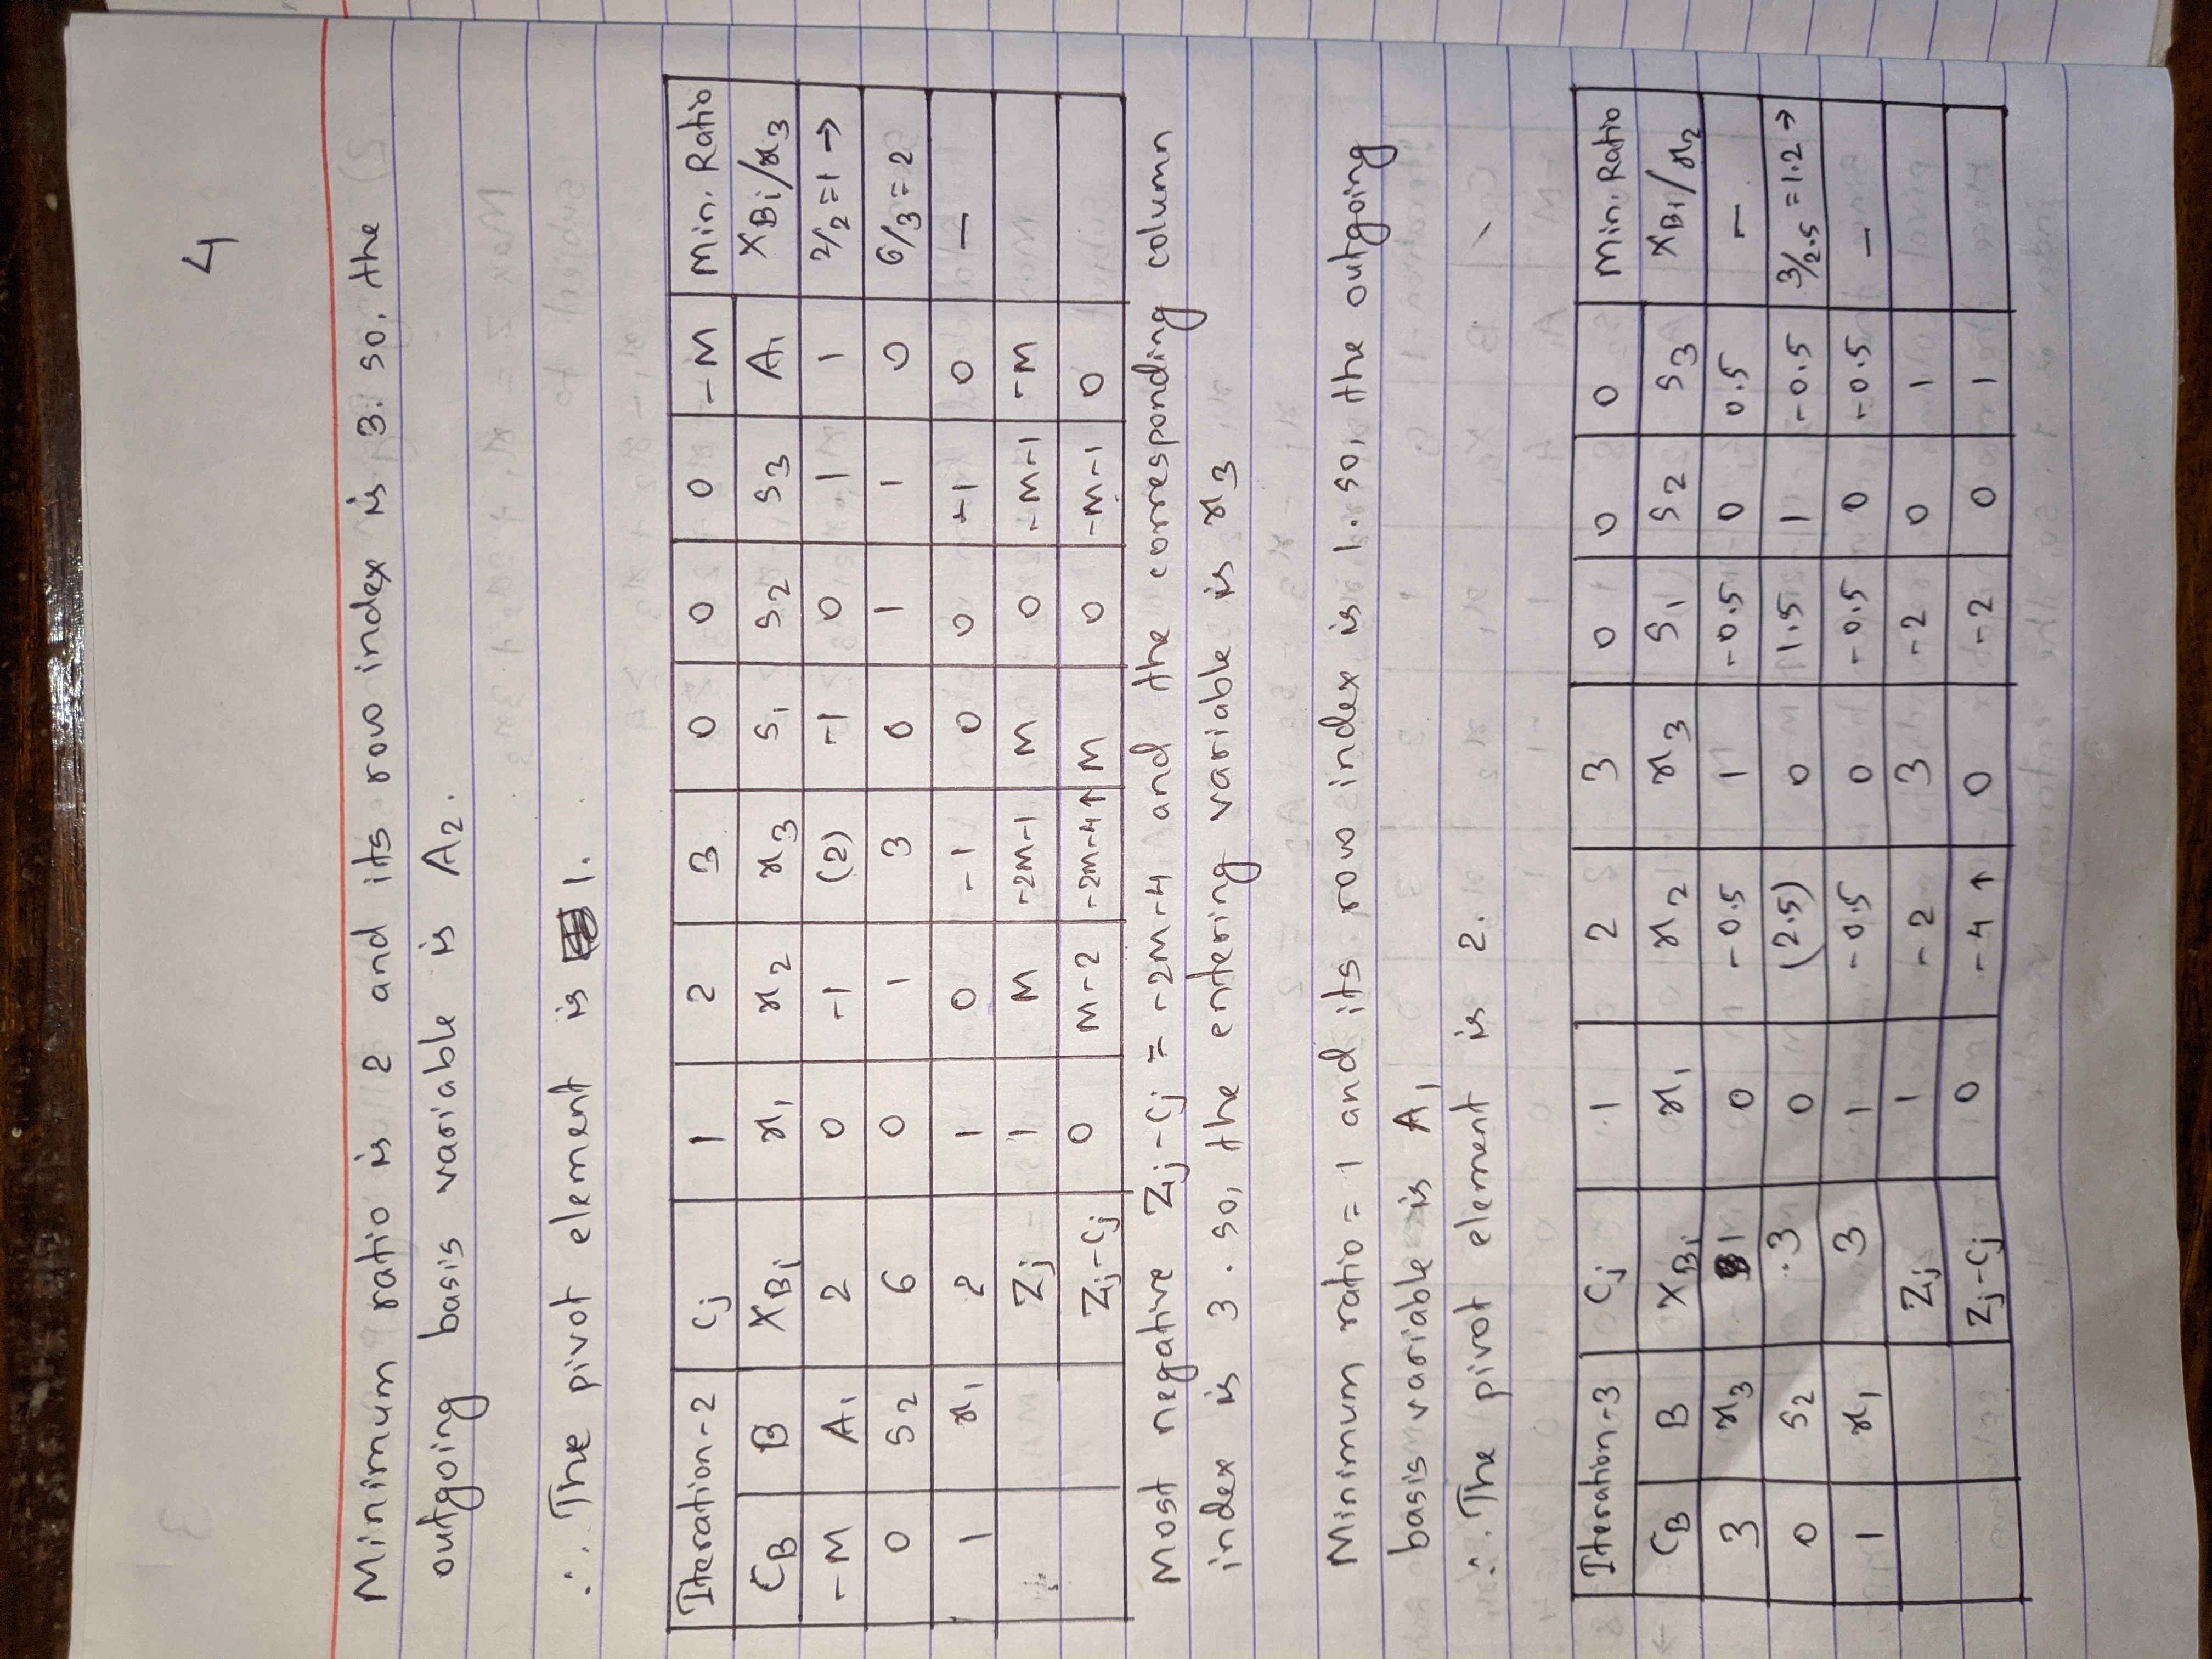 4
Minimum ratio is 2 and its row index is 3. so, the
outgoing basis variable is A2.
∴ The pivot element is 1.
Iteration-2 Cj 1 2 3 0 0 0 -M Min. Ratio
CB B XBi x1 x2 x3 S1 S2 S3 A1 XBi/x3
-M A1 2 0 -1 (2) -1 0 1 1 2/2=1 →
0 S2 6 0 1 3 0 1 1 0 6/3=2
1 x1 2 1 0 -1 0 0 -1 0 —
Zj 1 M -2M-1 M 0 -M-1 -M
Zj-Cj 0 M-2 -2M-4↑ M 0 -M-1 0
Most negative Zj-Cj = -2M-4 and the corresponding column
index is 3. so, the entering variable is x3
Minimum ratio = 1 and its row index is 1. so, the outgoing
basis variable is A1
∴ The pivot element is 2.
Iteration-3 Cj 1 2 3 0 0 0 Min. Ratio
CB B XBi x1 x2 x3 S1 S2 S3 XBi/x2
3 x3 1 0 -0.5 1 -0.5 0 0.5 —
0 S2 3 0 (2.5) 0 1.5 1 -0.5 3/2.5=1.2 →
1 x1 3 1 -0.5 0 -0.5 0 -0.5 —
Zj 1 -2 3 -2 0 1
Zj-Cj 0 -4↑ 0 -2 0 1